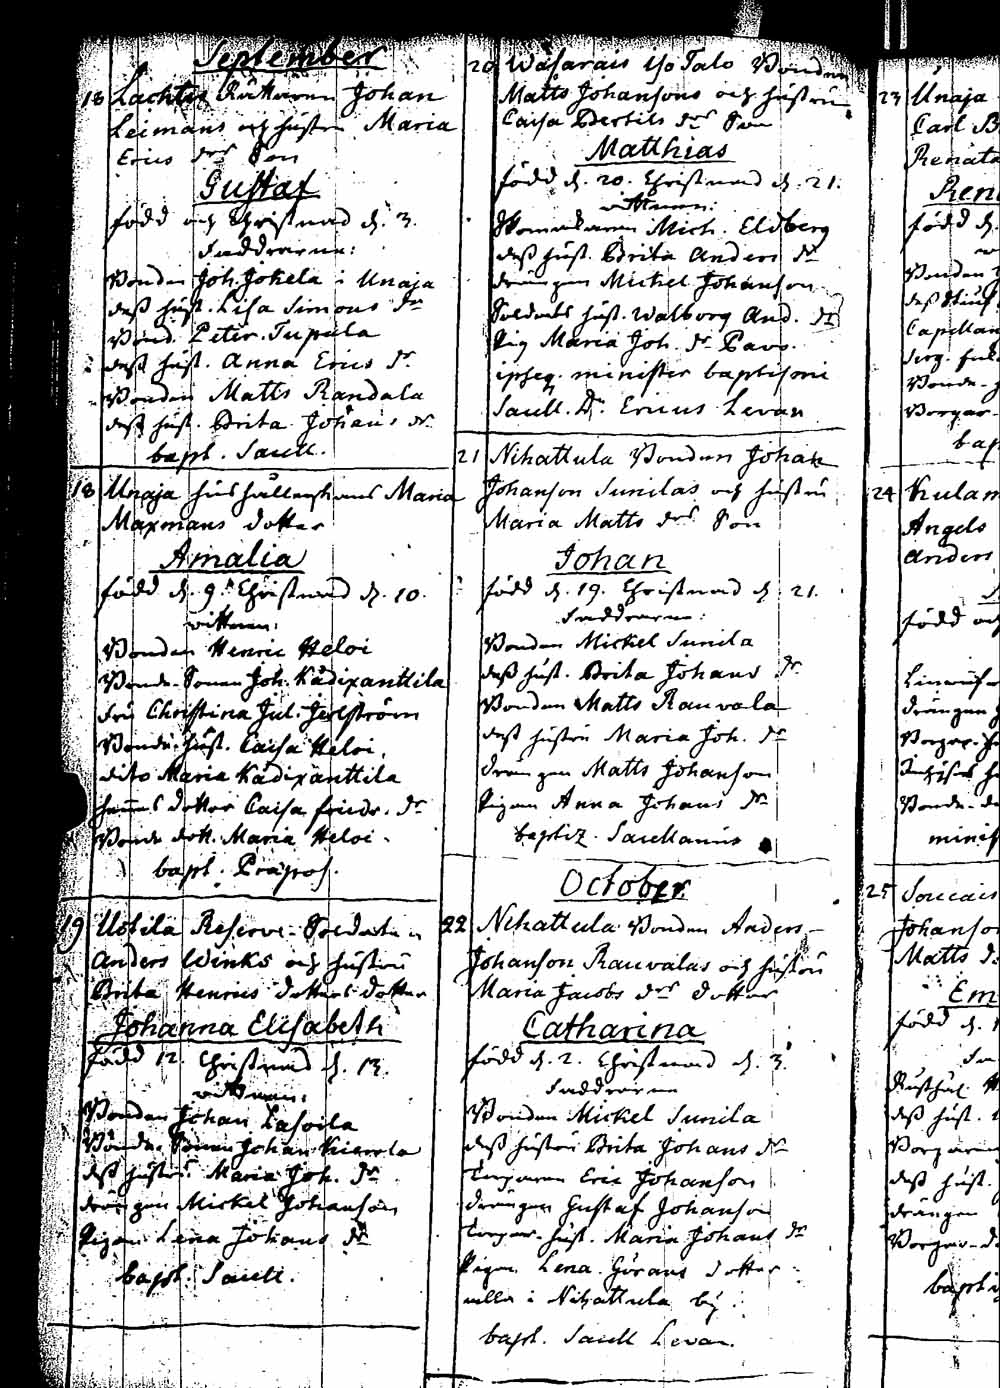 September
18 Lachtis Rättaren Johan
Leimans och hustru Maria
Erics drs Son
Gustaf
född och Christnad d. 3.
Faddrarna:
Bonden Joh. Jokela i Unaja
dess hust. Lisa Simons dr
Bond. Peter Tupala
dess hust. Anna Erics dr.
Bonden Matts Randala
dess hust. Brita Johans dr.
bapt. Sacell.
18 Unaja Maria
Maxmans dotter
Amalia
född d. 9. Christnad d. 10.
vittnen:
Bonden Henric Heloi
Bonde-Sonen Joh. Kädixanttila
Fru Christina Jul. Jerlström
Bonde-hust. Caisa Heloi.
dito Maria Kädixänttila
dotter Caisa Friedr. dr
Bonde dott. Maria Heloi.
bapt. Präpos.
19 Uotila Reserve-Soldaten
Anders Winks och hustru
Brita Henrics dotters dotter
Johanna Elisabeth
född 12. Christnad d. 13.
vittnen:
Bonden Johan Lasoila
Bonde-Sonen Johan
dess hustru Maria Joh. dr
drängen Mickel Johanson
Pigan Lena Johans dr
bapt. Sacell.
20 Wäsarais iso Talo Bonden
Matts Johansons och hustru
Caisa Bertils drs Son
Matthias
född d. 20. Christnad d. 21.
vittnen:
Skomakaren Mich. Eldberg
dess hust. Brita Anders dr
drängen Mickel Johanson
Soldats hust. Walborg And. dr
Pig Maria Joh. dr Pavo.
ipseq. minister baptismi
Sacell. Dn. Ericus Levan
21 Nihattula Bonden Johan
Johanson Sunilas och hustru
Maria Matts drs Son
Johan
född d. 19. Christnad d. 21.
Faddrarne:
Bonden Mickel Sunila
dess hust. Brita Johans dr
Bonden Matts Rauvala
dess hustru Maria Joh. dr
drängen Matts Johanson
Pigan Anna Johans dr
baptiz. Sacellanus
October
22 Nihattula Bonden Anders
Johanson Rauvalas och hustru
Maria Jacobs drs dotter
Catharina
född d. 2. Christnad d. 3.
Faddrarne
Bonden Mickel Sunila
dess hustru Brita Johans dr
Torparen Eric Johanson
drängen Gustaf Johanson
Torpar-hust. Maria Johans dr
Pigan Lena Görans dotter
alla i Nihattula by.
bapt. Sacell Levan.
23 Unaja
Carl B
Renata
Ren
född d.
Bonden
dess
Capellan
Bonde-
Borgar-
bap
24 Kulam
Angels
Anders
född och
drängen
Borgar-
Bonde-d
minis
25 Sorcais
Johanson
Matts d
Em
född d.
dess hust.
Borgaren
dess hust.
drängen
Borgar-d
bapti